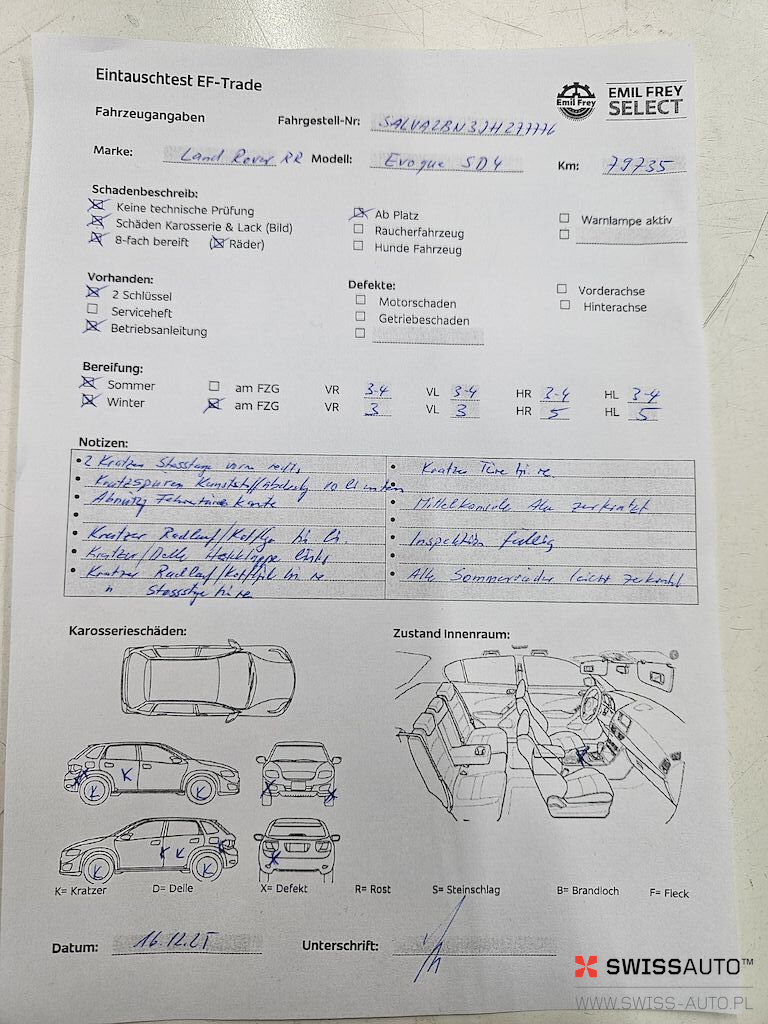 Eintauschtest EF-Trade
Emil Frey
EMIL FREY
SELECT
Fahrzeugangaben
Fahrgestell-Nr: SALVA2BN3JH277776
Marke: Land Rover RR Modell: Evoque SD4 Km: 79735
Schadenbeschreib:
Keine technische Prüfung
Schäden Karosserie & Lack (Bild)
8-fach bereift ( Räder)
Ab Platz
Raucherfahrzeug
Hunde Fahrzeug
Warnlampe aktiv
Vorhanden:
2 Schlüssel
Serviceheft
Betriebsanleitung
Defekte:
Motorschaden
Getriebeschaden
Vorderachse
Hinterachse
Bereifung:
Sommer am FZG VR 3-4 VL 3-4 HR 3-4 HL 3-4
Winter am FZG VR 3 VL 3 HR 5 HL 5
Notizen:
• 2 Kratzer Stosstge vorn rechts
• Kratzspuren Kunststoffabdeckg vo li unten
• Abnützg Fahrertüre Kante
•
• Kratzer Radlauf/Kotflgl hi li
• Kratzer/Delle Heckklappe links
• Kratzer Radlauf/Kotflgl hi re
" Stossstge hi re
• Kratzer Türe hi re
•
• Mittelkonsole Alu zerkratzt
•
• Inspektion fällig
•
• Alle Sommerräder leicht zerkratzt
Karosserieschäden:
Zustand Innenraum:
K
K K
X X
K K
K K
X
K= Kratzer D= Delle X= Defekt R= Rost S= Steinschlag B= Brandloch F= Fleck
Datum: 16.12.25 Unterschrift:
SWISSAUTO™
WWW.SWISS-AUTO.PL